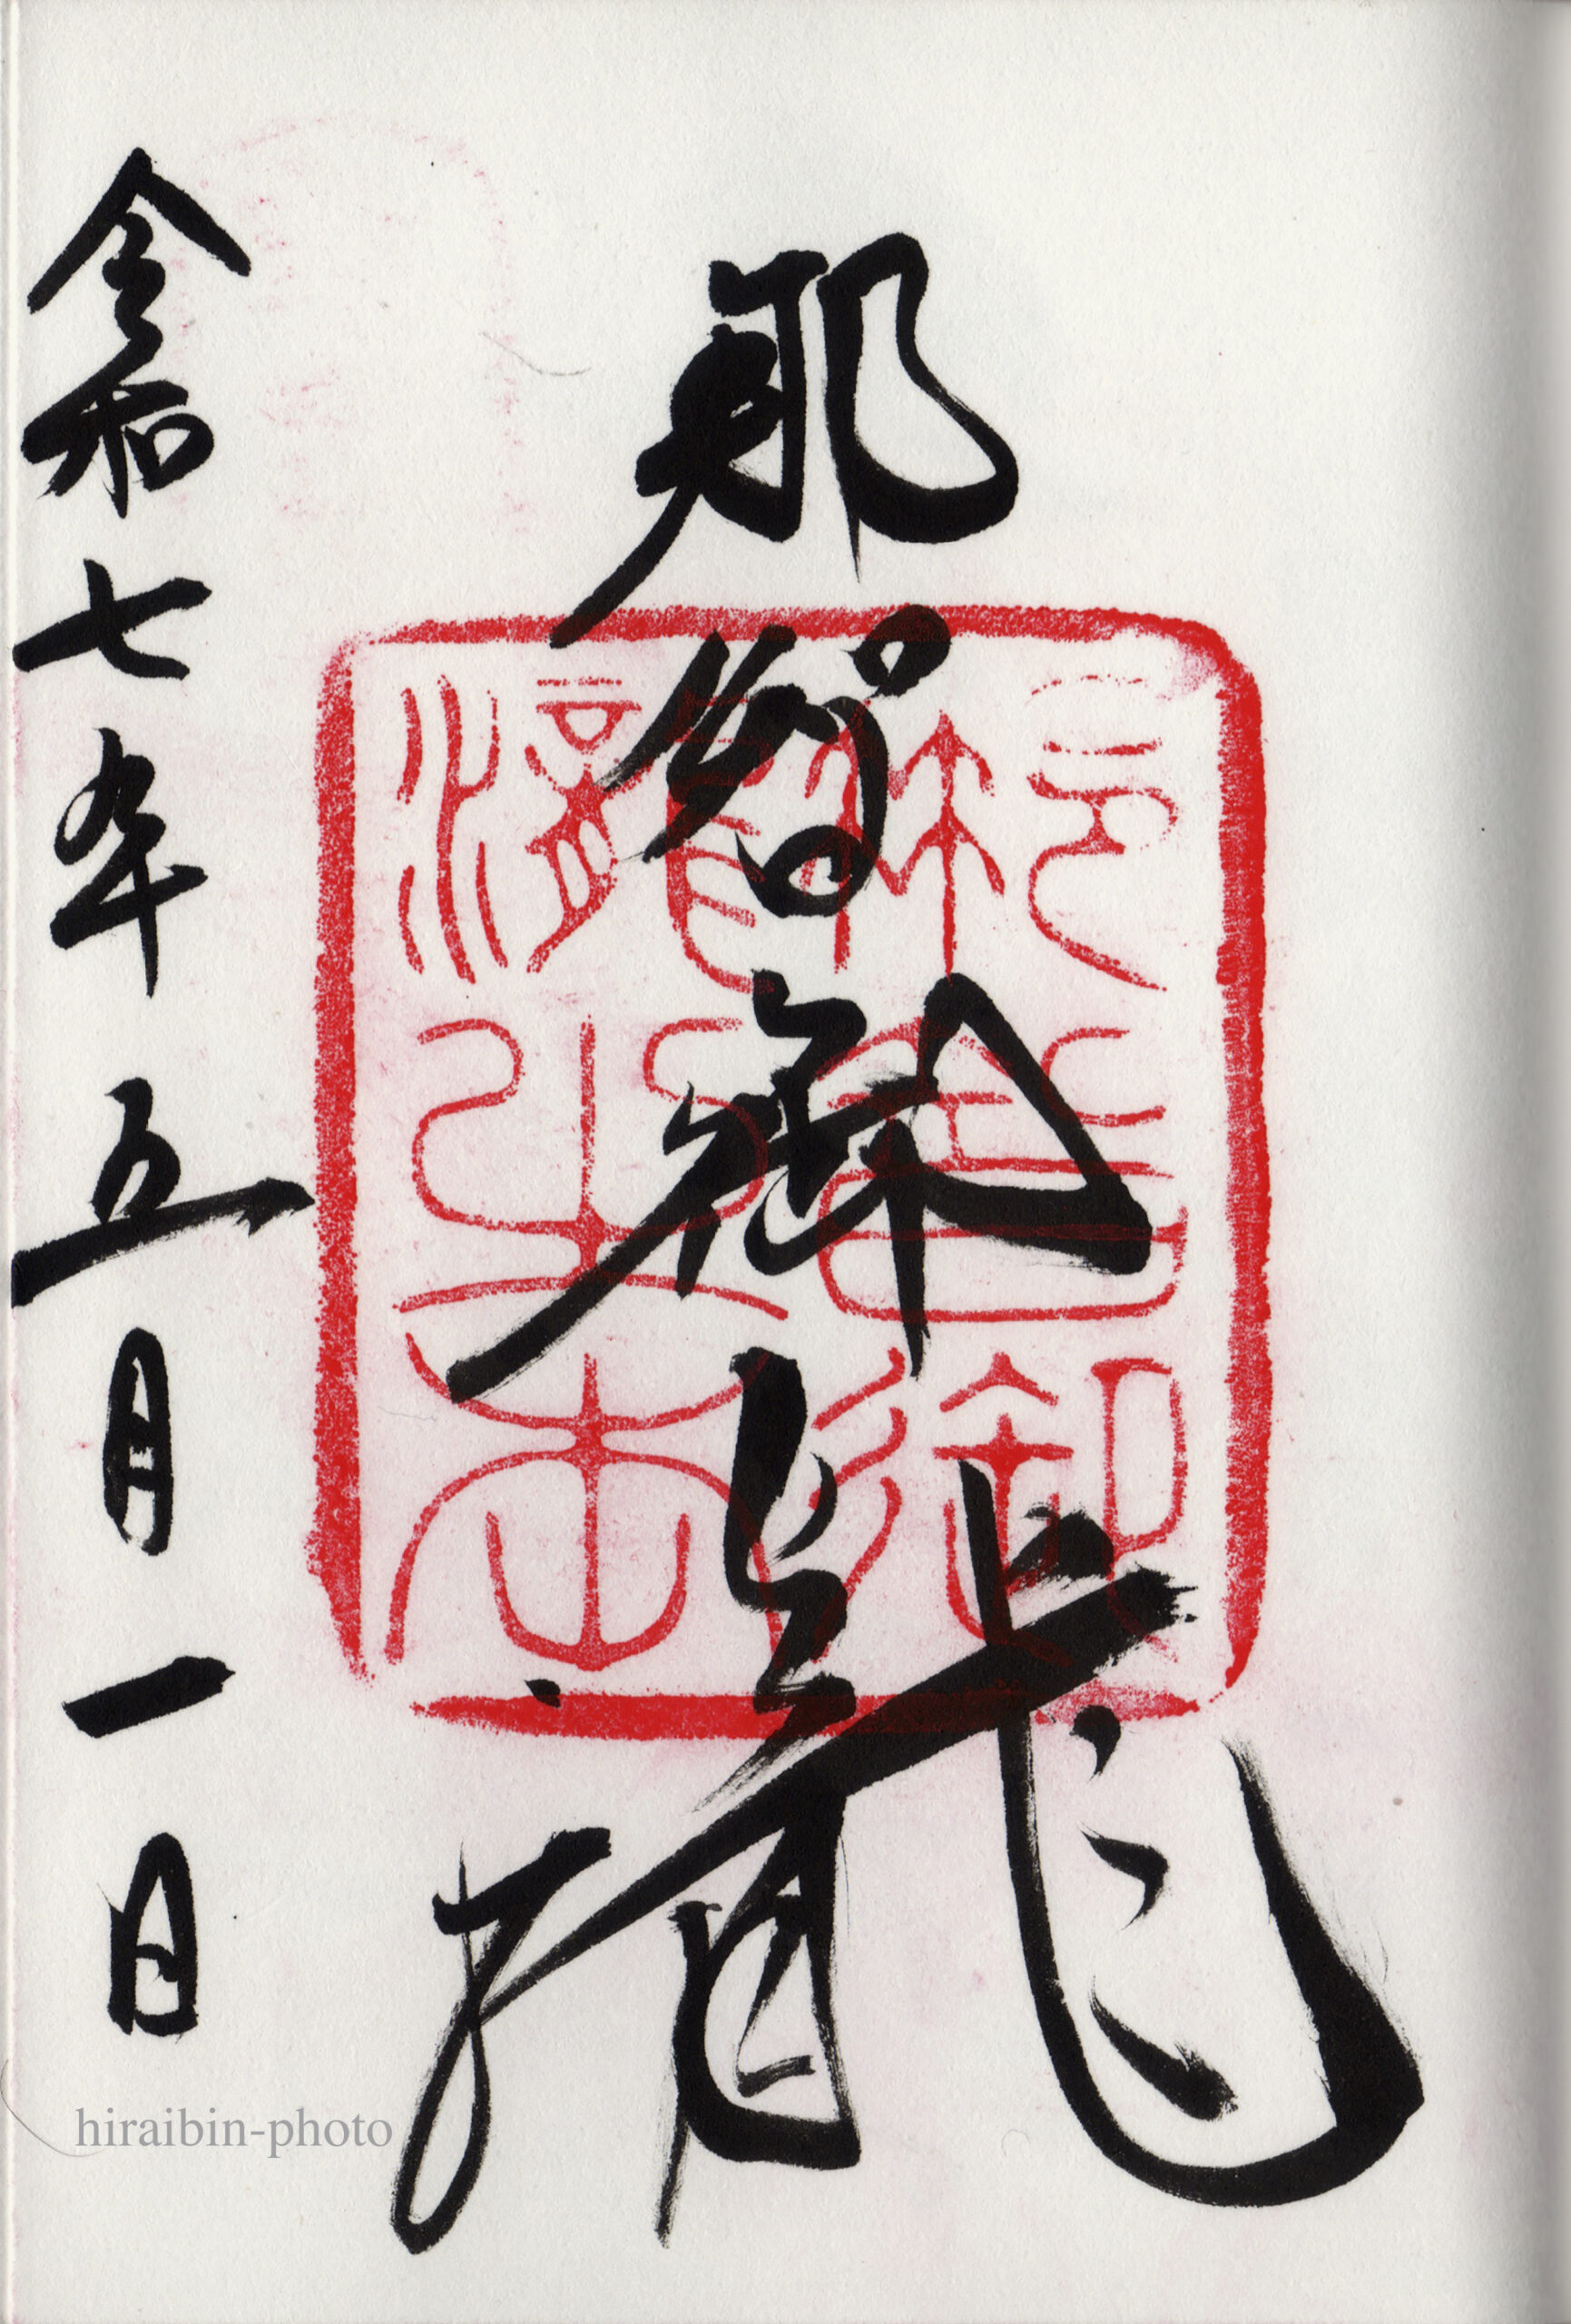 那智御瀧
令和七年五月一日
hiraibin-photo